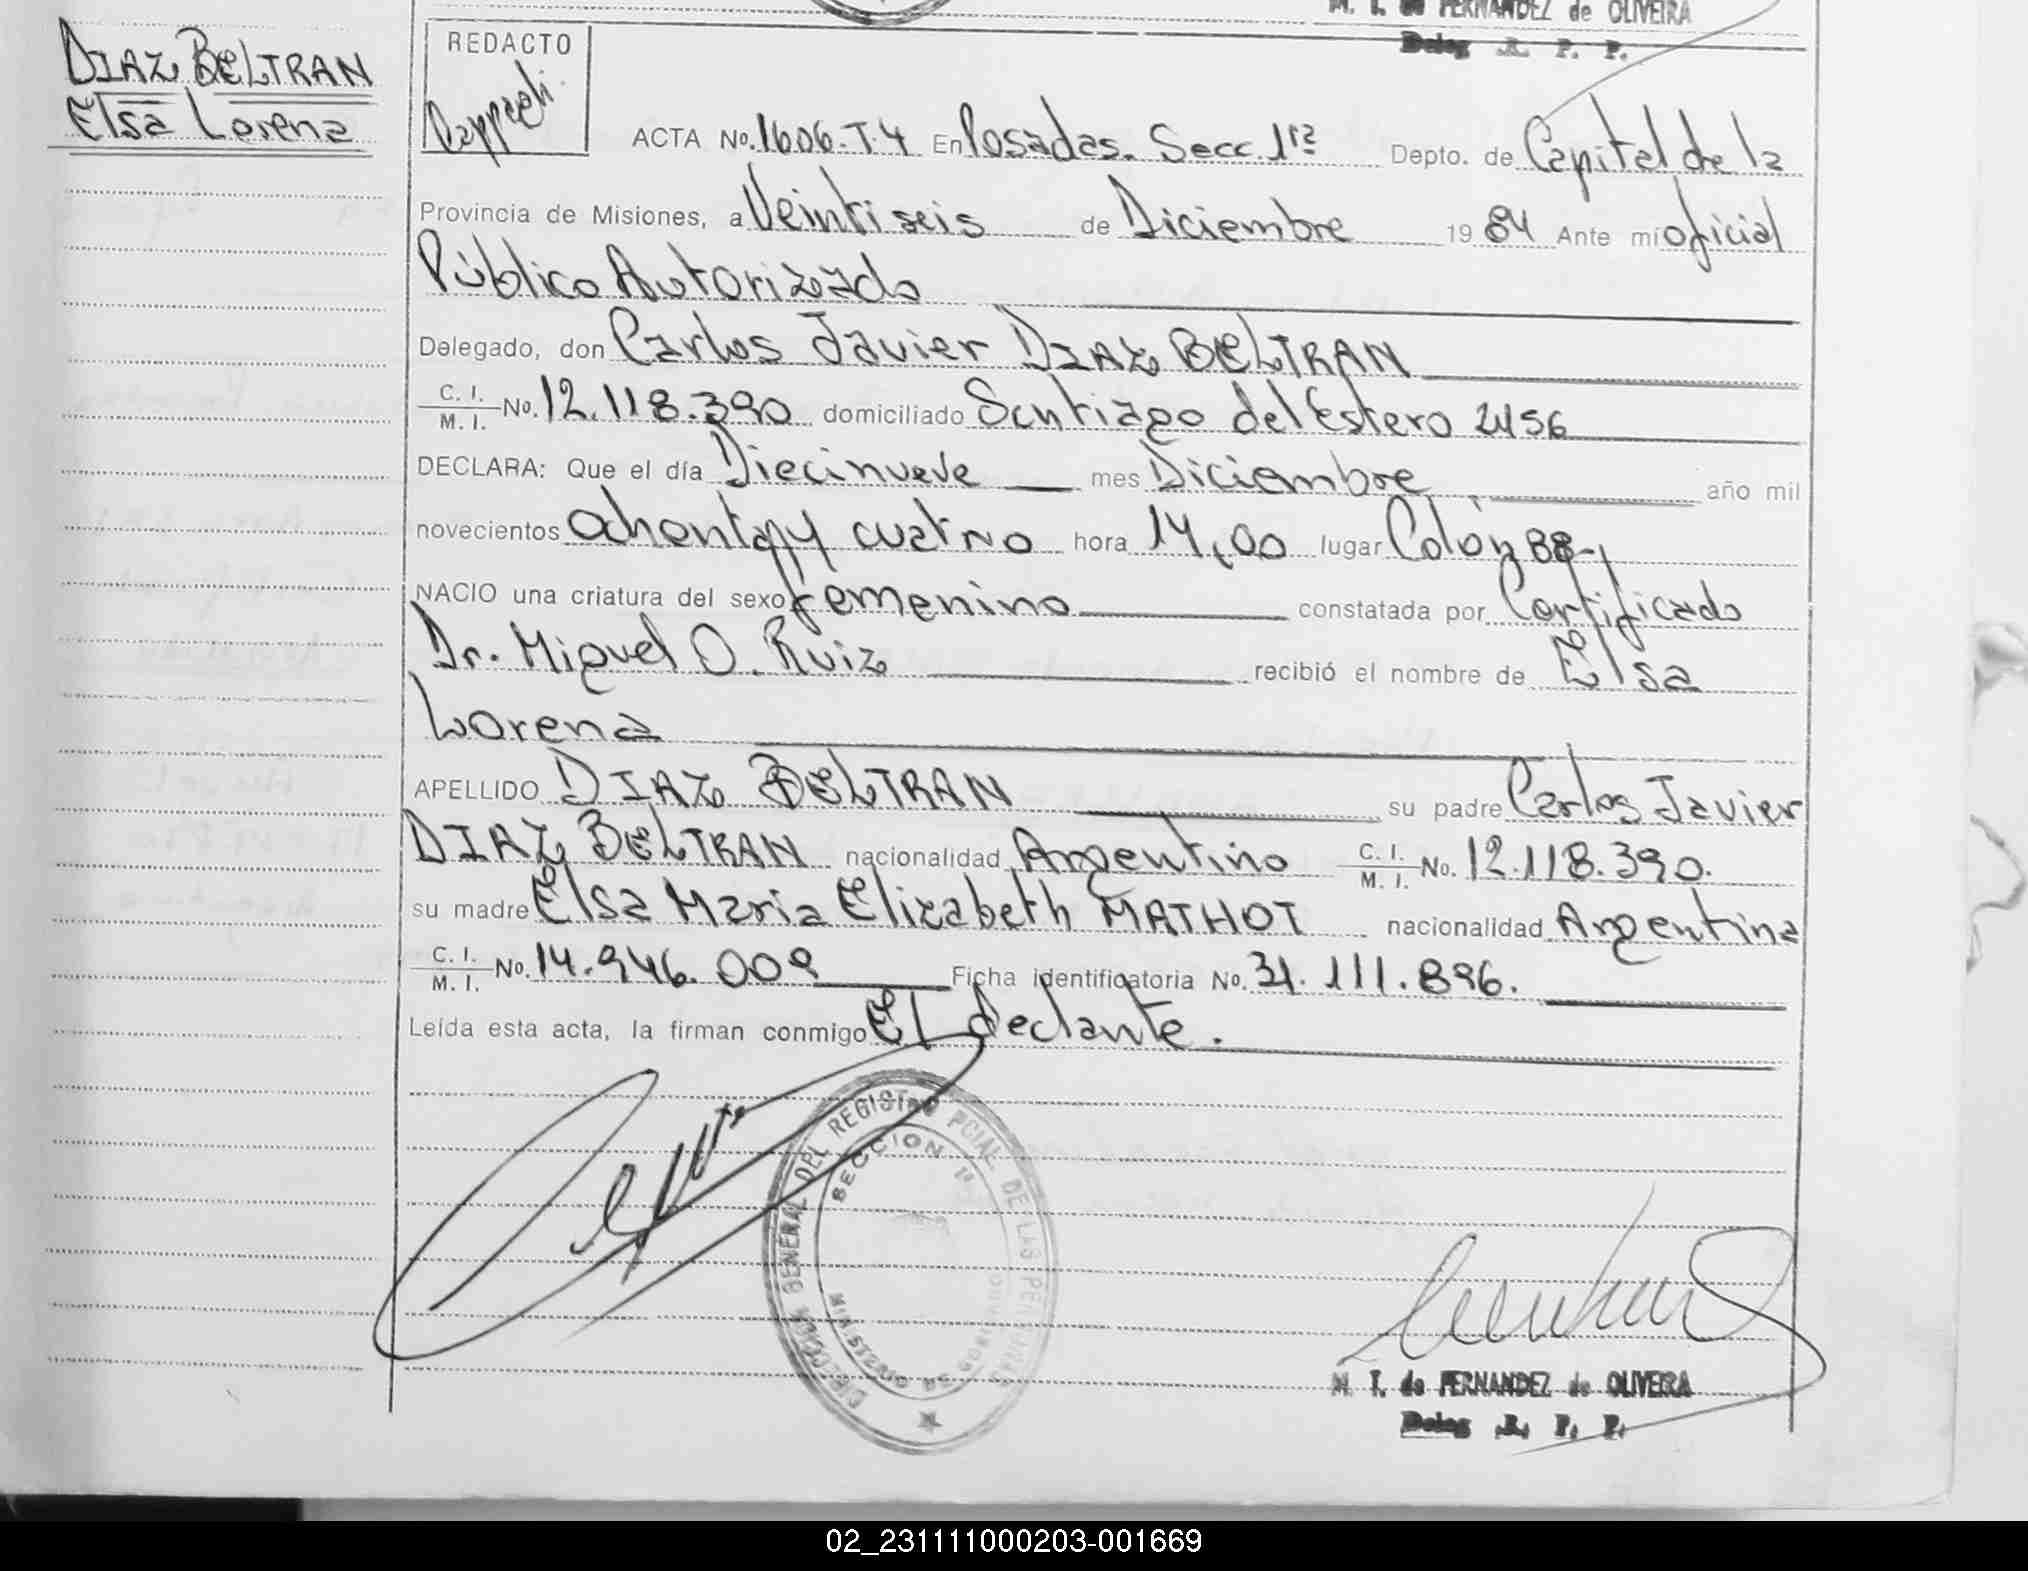 M. T. de FERNANDEZ de OLIVEIRA
Deleg R. P. P.
DIAZ BELTRAN
Elsa Lorena
REDACTO
ACTA No. 1606. T. 4 En Posadas. Secc. 1ra Depto. de Capital de la
Provincia de Misiones, a Veintiseis de Diciembre 19 84 Ante mi oficial
Público Autorizado
Delegado, don Carlos Javier DIAZ BELTRAN
C. I.
M. I. No. 12.118.390 domiciliado Santiago del Estero 2456
DECLARA: Que el día Diecinueve mes Diciembre año mil
novecientos ochenta y cuatro hora 14,00 lugar Colón 88-,
NACIO una criatura del sexo femenino constatada por Certificado
Dr. Miguel O. Ruiz recibió el nombre de Elsa
Lorena
APELLIDO DIAZ BELTRAN su padre Carlos Javier
DIAZ BELTRAN nacionalidad Argentino C. I.
M. I. No. 12.118.390.
su madre Elsa Maria Elizabeth MATHOT nacionalidad Argentina
C. I.
M. I. No. 14.946.009 Ficha identificatoria No. 31.111.896.
Leída esta acta, la firman conmigo EL declante.
DIRECCION GENERAL DEL REGISTRO PCIAL. DE LAS PERSONAS
SECCION 1ª
MINISTERIO DE GOBIERNO
M. T. de FERNANDEZ de OLIVEIRA
Deleg R. P. P.
02_231111000203-001669